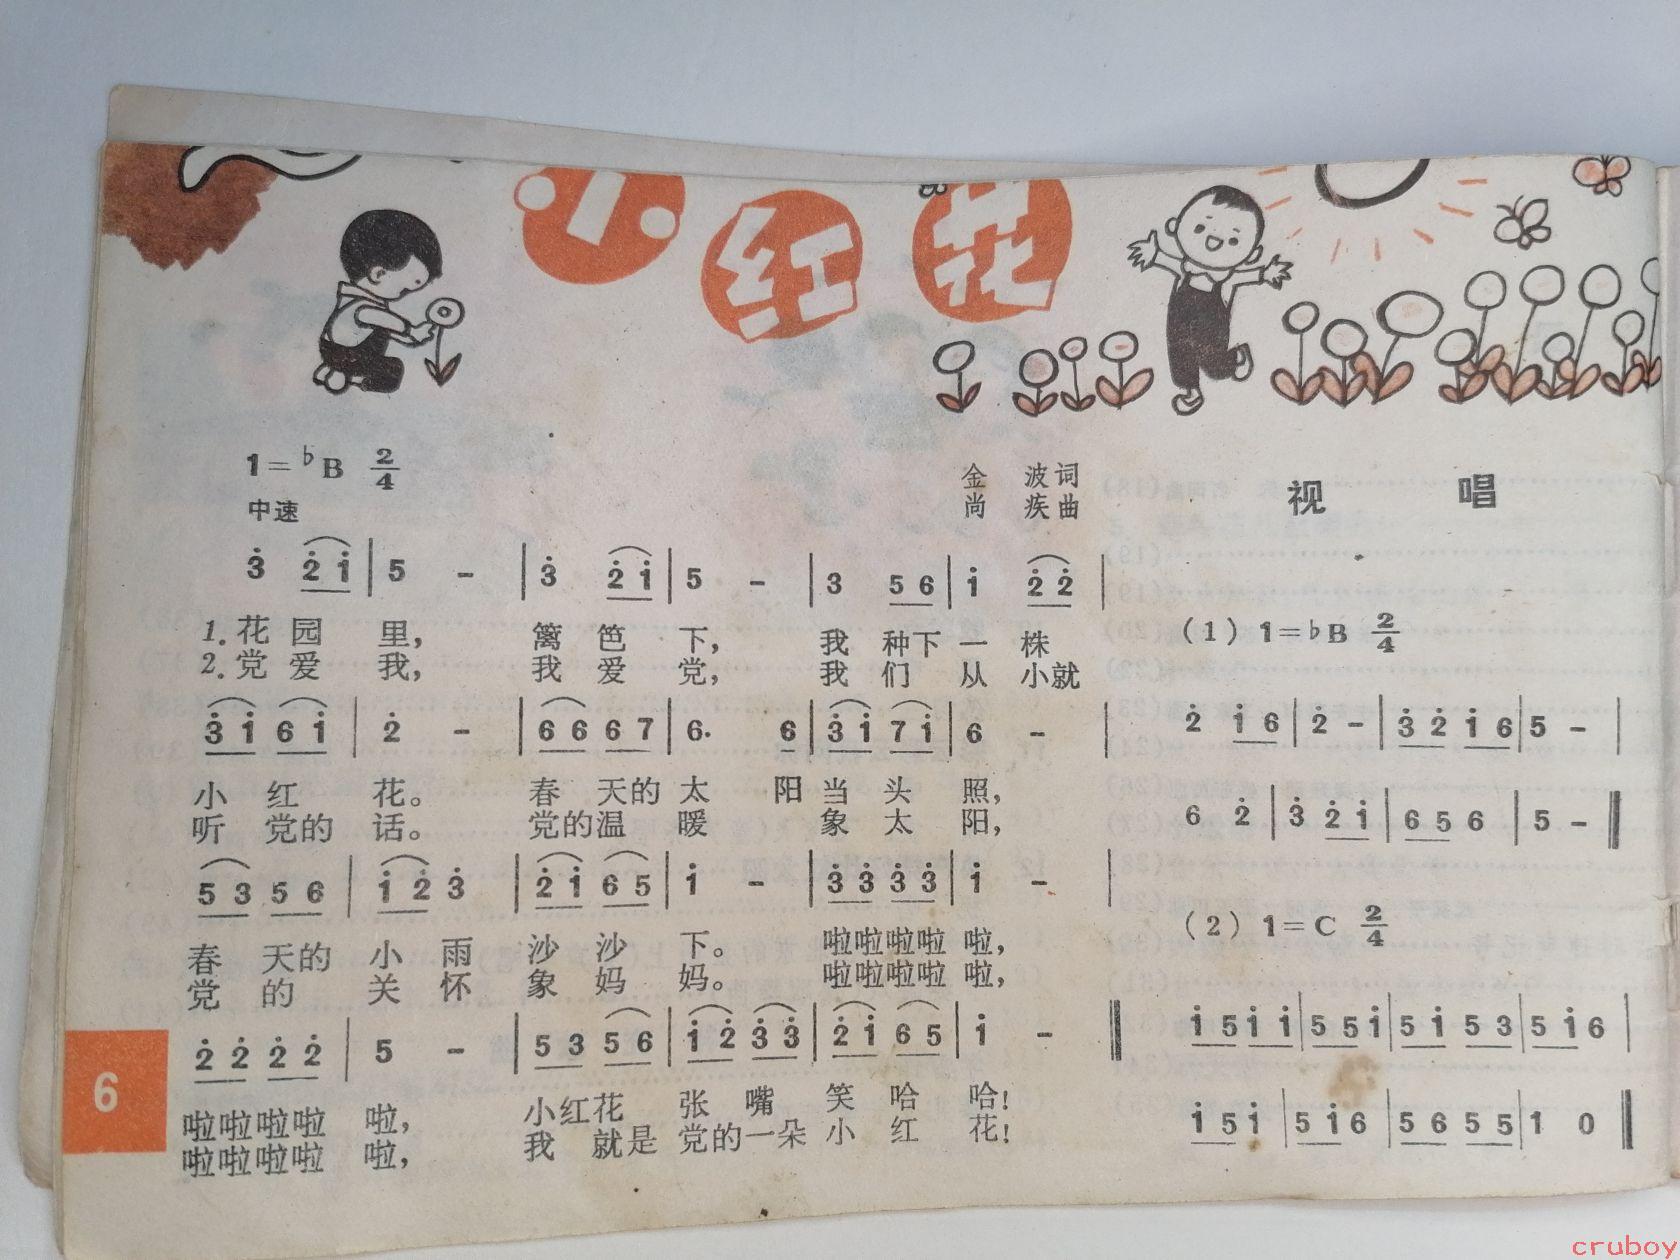 小红花
1=♭B 2/4
中速
金 波 词
尚 疾 曲
3̇ 2̇ 1̇ | 5 - | 3̇ 2̇ 1̇ | 5 - | 3 5 6 | 1̇ 2̇ 2̇ |
1.花 园 里, 篱 笆 下, 我 种下 一 株
2.党 爱 我, 我 爱 党, 我 们 从 小就
3̇ 1̇ 6 1̇ | 2̇ - | 6 6 6 7 | 6· 6 | 3̇ 1̇ 7 1̇ | 6 - |
小 红 花。 春 天的 太 阳 当 头 照,
听 党的 话。 党的温 暖 象 太 阳,
5 3 5 6 | 1̇ 2̇ 3̇ | 2̇ 1̇ 6 5 | 1̇ - | 3̇ 3̇ 3̇ 3̇ | 1̇ - |
春 天的 小 雨 沙 沙 下。 啦啦啦啦 啦,
党 的 关 怀 象 妈 妈。 啦啦啦啦 啦,
2̇ 2̇ 2̇ 2̇ | 5 - | 5 3 5 6 | 1̇ 2̇ 3̇ 3̇ | 2̇ 1̇ 6 5 | 1̇ - ‖
啦啦啦啦 啦, 小红花 张 嘴 笑 哈 哈!
啦啦啦啦 啦, 我 就是 党的一朵 小 红 花!
6
视 唱
(1) 1=♭B 2/4
2̇ 1̇ 6 | 2̇ - | 3̇ 2̇ 1̇ 6 | 5 - |
6 2̇ | 3̇ 2̇ 1̇ | 6 5 6 | 5 - ‖
(2) 1=C 2/4
1̇ 5 1̇ 1̇ | 5 5 1̇ | 5 1̇ 5 3 | 5 1̇ 6 |
1̇ 5 1̇ | 5 1̇ 6 | 5 6 5 5 | 1 0 ‖
cruboy